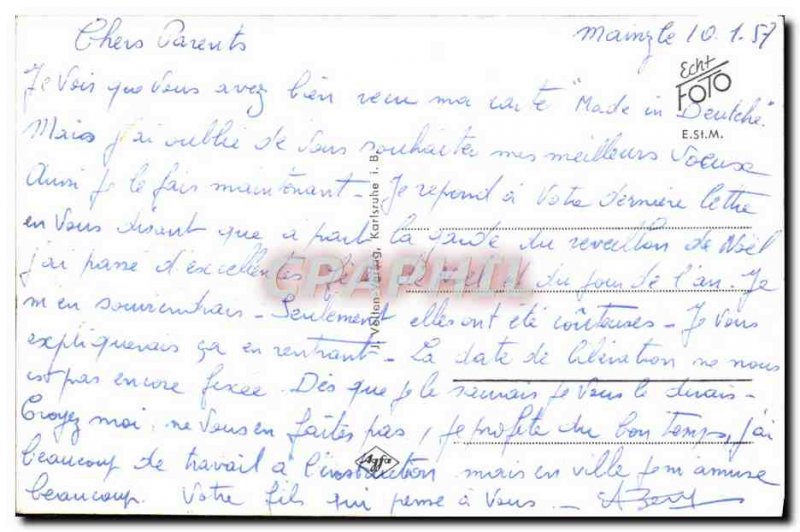 Chers Parents
Mainz le 10.1.57
Je vois que vous avez bien recu ma carte "Made in Deutche".
Echt
FOTO
E.St.M.
Mais j'ai oublié de vous souhaiter mes meilleurs voeux
Aussi je le fais maintenant - Je repond à votre derniere lettre
en vous disant que a part la garde du reveillon de Noël
j'ai passé d'excellentes fêtes de Noël et du jour de l'an. Je
m'en souviendrais - Seulement elles ont été coûteuses - Je vous
expliquerais ça en rentrant - La date de libération ne nous
est pas encore fixée. Dès que je le saurais je vous le dirais -
Croyez moi, ne vous en faites pas, je profite du bon temps, j'ai
beaucoup de travail à l'instruction mais en ville je m'amuse
beaucoup. Votre fils qui pense à vous -
J. Vollon-Verlag, Karlsruhe i. B.
Agfa
CPAPHIL